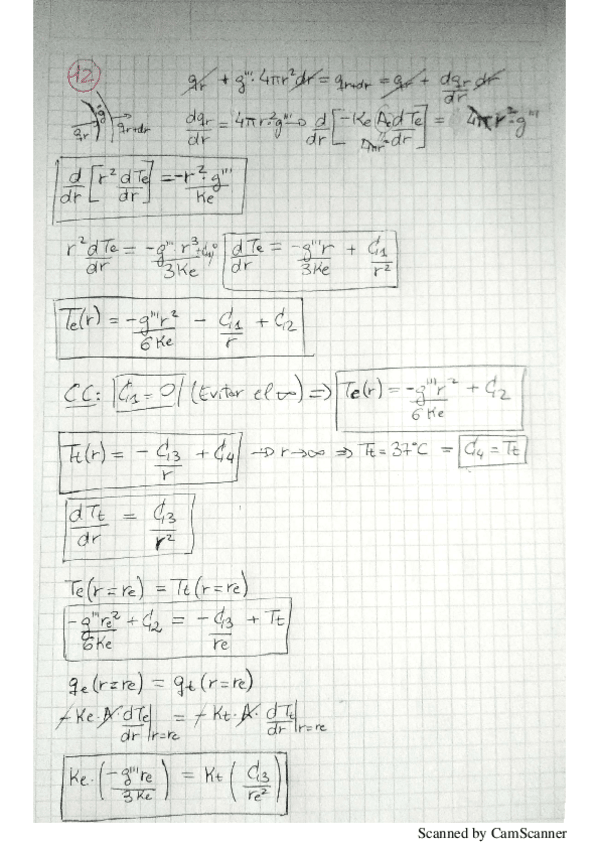 12
qr + g'''·4πr²dr = qr+dr = qr + dqr/dr dr
qr qr+dr
dqr/dr = 4πr²·g''' → d/dr [-Ke Ac dTe/dr] = 4πr²·g'''
4πr²
d/dr [r² dTe/dr] = -r²·g'''/Ke
r² dTe/dr = -g''' r³/3Ke + C1 dTe/dr = -g'''r/3Ke + C1/r²
Te(r) = -g'''r²/6Ke - C1/r + C2
CC: C1 = 0 (Evitar el ∞) ⇒ Te(r) = -g'''r²/6Ke + C2
Tt(r) = - C3/r + C4 → r→∞ ⇒ Tt = 37°C = C4 = Tt
dTt/dr = C3/r²
Te(r=re) = Tt(r=re)
-g'''re²/6Ke + C2 = - C3/re + Tt
qe(r=re) = qt(r=re)
-Ke·A·dTe/dr|r=re = -Kt·A·dTt/dr|r=re
Ke·(-g'''re/3Ke) = Kt(C3/re²)
Scanned by CamScanner